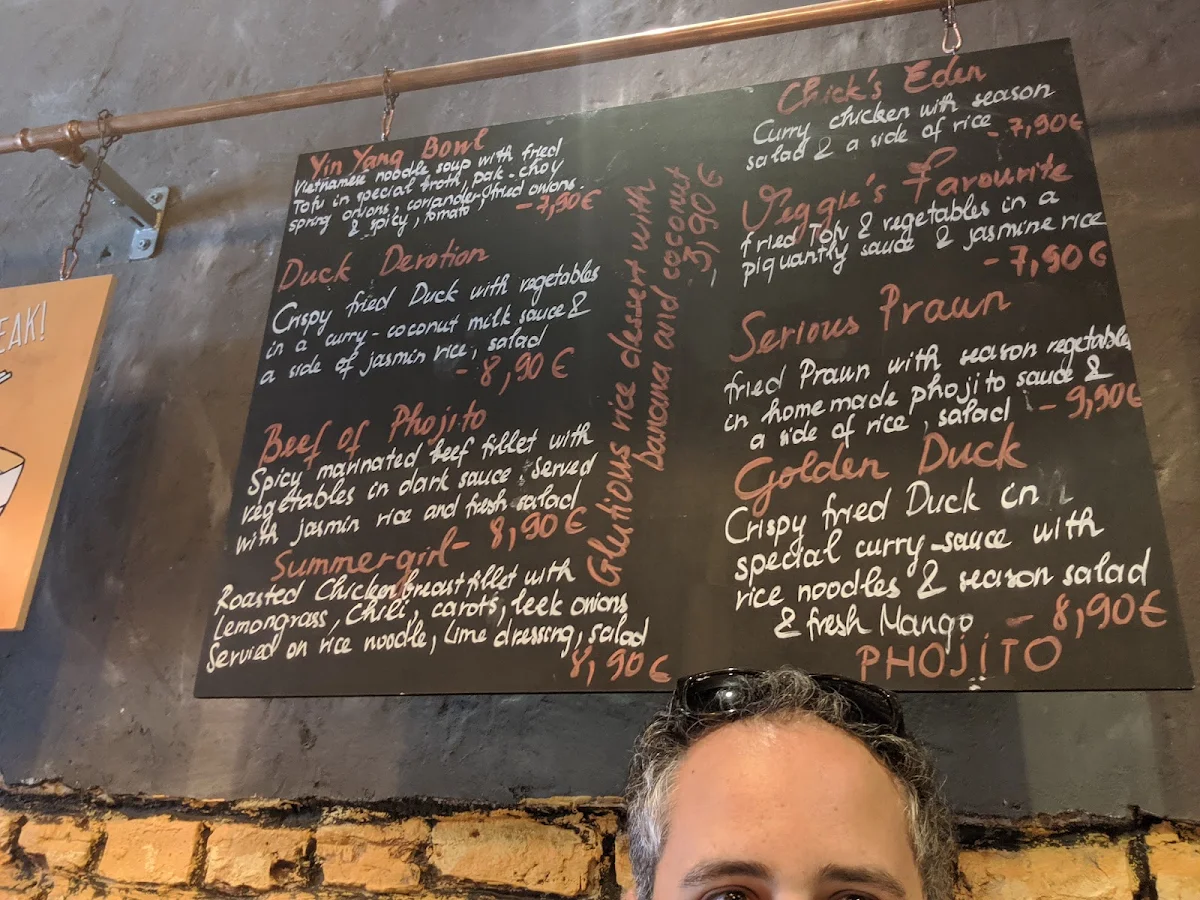 EAK!
Yin Yang Bowl
Vietnamese noodle soup with fried
Tofu in special broth, pak-choy
spring onions, coriander, fried onions.
& spicy, tomato - 7,90€
Duck Devotion
Crispy fried Duck with vegetables
in a curry-coconut milk sauce &
a side of jasmin rice, salad
- 8,90 €
Beef of Phojito
Spicy marinated beef fillet with
vegetables in dark sauce. Served
with jasmin rice and fresh salad
- 8,90 €
Summergirl
Roasted Chickenbreast fillet with
Lemongrass, Chili, carots, leek onions
Servied on rice noodle, lime dressing, salad
8,90 €
Glutious rice dessert with
banana and coconut
3,90€
Chick's Eden
Curry chicken with season
salad & a side of rice - 7,90€
Veggie's Favourite
fried Tofu & vegetables in a
piquantly sauce & jasmine rice
- 7,90€
Serious Prawn
fried Prawn with season vegetables
in homemade phojito sauce &
a side of rice, salad - 9,90€
Golden Duck
Crispy fried Duck in
special curry-sauce with
rice noodles & season salad
& fresh Mango - 8,90€
PHOJITO